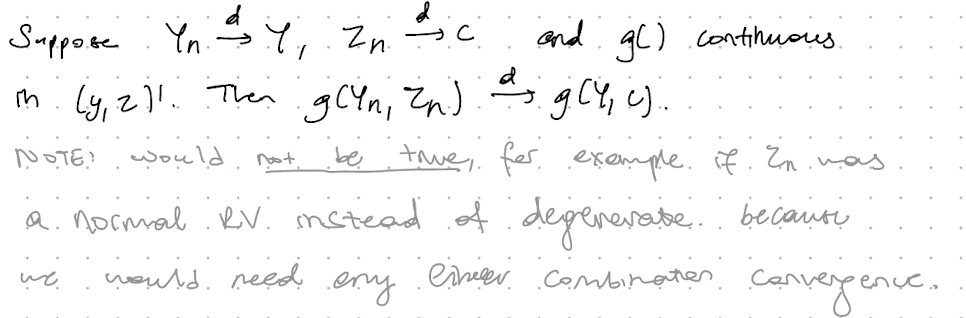 Suppose Yn →d Y, Zn →d c and g() continuous
in (y,z)'. Then g(Yn, Zn) →d g(Y, c).
NOTE: would not be true, for example if Zn was
a normal RV instead of degenerate because
we would need any linear combination convergence.